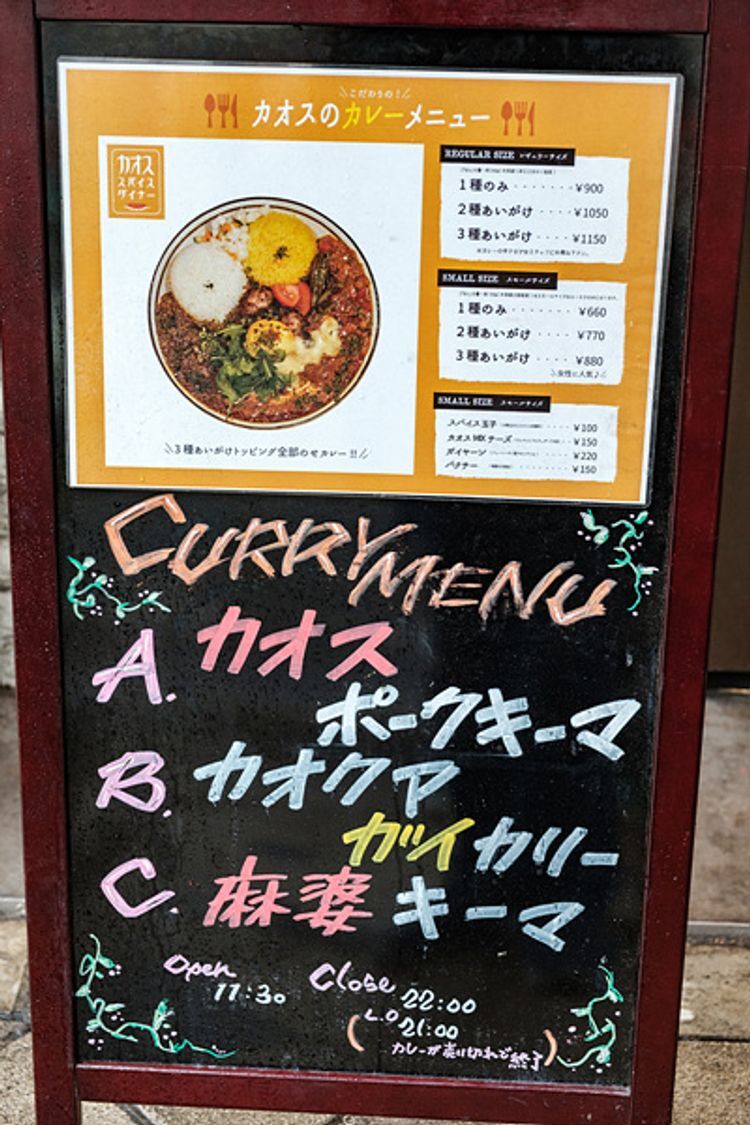 こだわりの！
カオスのカレーメニュー
カオス
スパイス
ダイナー
REGULAR SIZE レギュラーサイズ
1種のみ ・・・・・・・ ¥900
2種あいがけ ・・・・ ¥1050
3種あいがけ ・・・・ ¥1150
SMALL SIZE スモールサイズ
1種のみ ・・・・・・・ ¥660
2種あいがけ ・・・・ ¥770
3種あいがけ ・・・・ ¥880
女性に人気♪
SMALL SIZE スモールサイズ
スパイス玉子 ・・・・ ¥100
カオスMIXチーズ ・・・・ ¥150
ガイヤーン ・・・・ ¥220
パクチー ・・・・ ¥150
3種あいがけトッピング全部のせカレー!!
CURRY MENU
A. カオス
ポークキーマ
B. カオクア
ガツイカリー
C. 麻婆キーマ
Open
11:30
Close
22:00
L.O
21:00
(カレーが売り切れで終了)